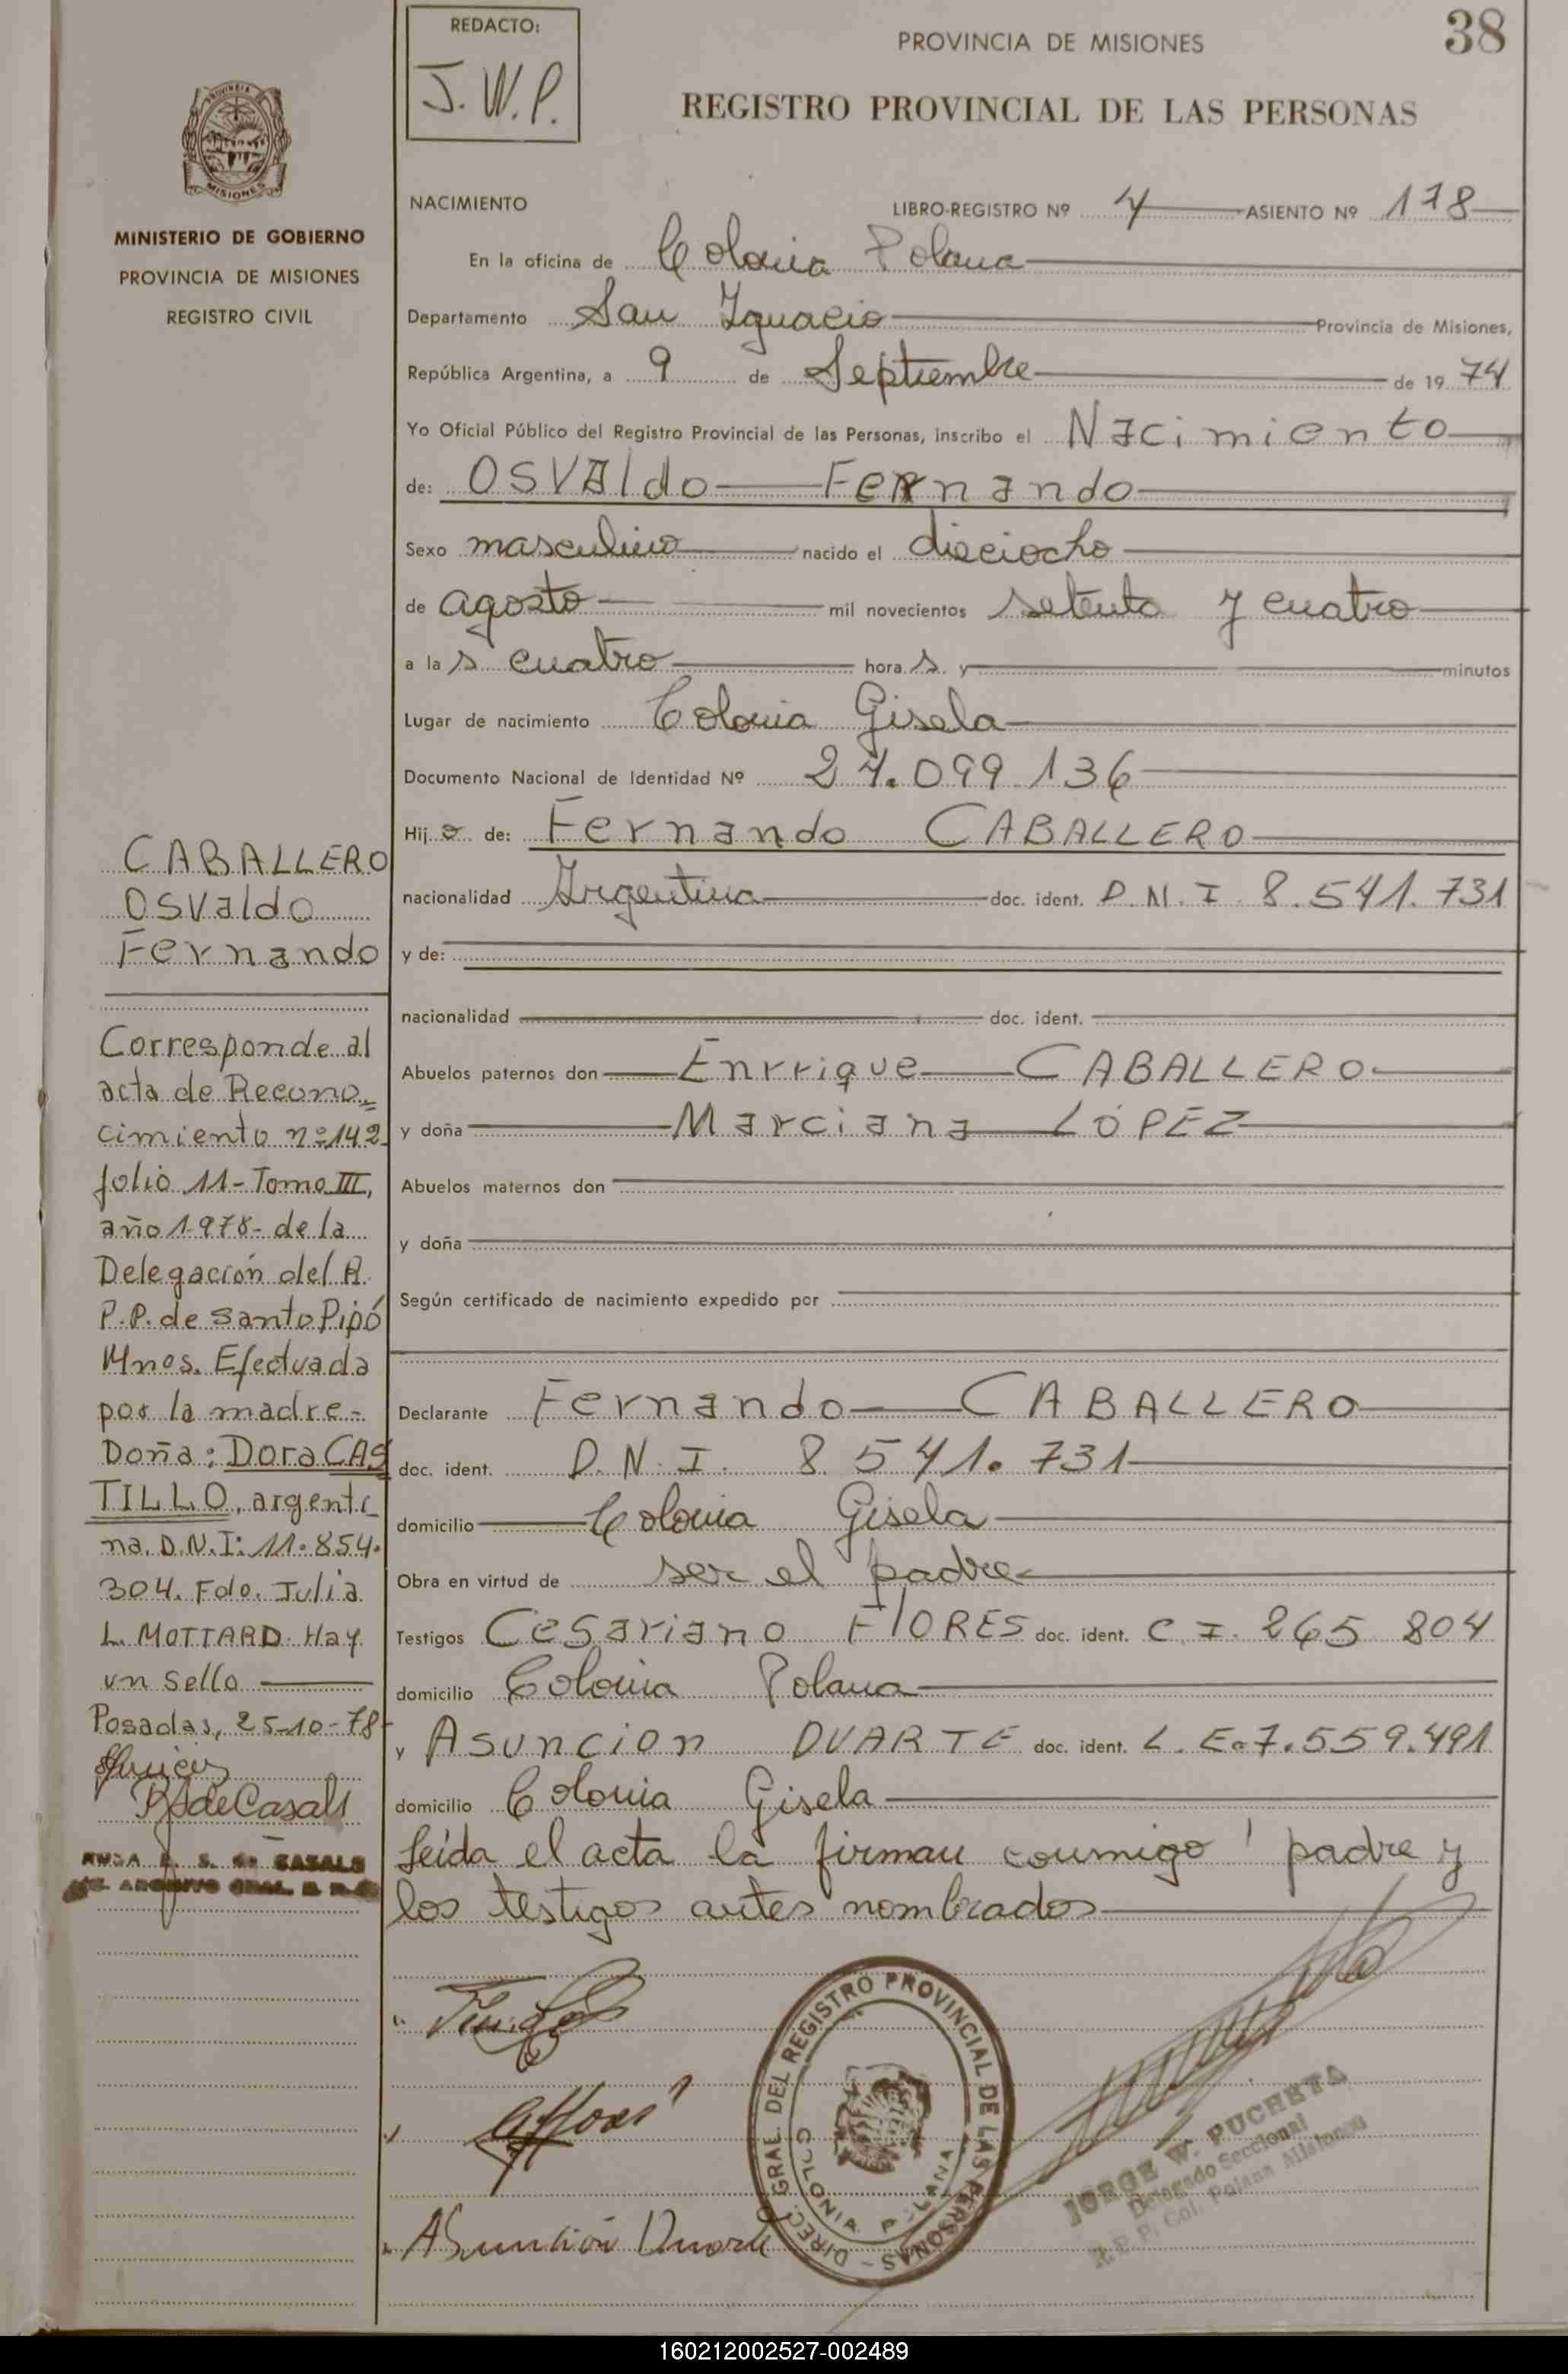 REDACTO:
J. W. P.
PROVINCIA DE MISIONES
38
REGISTRO PROVINCIAL DE LAS PERSONAS
PROVINCIA DE
MISIONES
MINISTERIO DE GOBIERNO
PROVINCIA DE MISIONES
REGISTRO CIVIL
NACIMIENTO LIBRO-REGISTRO Nº 4 ASIENTO Nº 178
En la oficina de Colonia Polana
Departamento San Ignacio Provincia de Misiones,
República Argentina, a 9 de Septiembre de 19 74
Yo Oficial Público del Registro Provincial de las Personas, inscribo el Nacimiento
de: OSVAldo Fernando
Sexo masculino nacido el dieciocho
de agosto mil novecientos setenta y cuatro
a la s cuatro hora s y minutos
Lugar de nacimiento Colonia Gisela
Documento Nacional de Identidad Nº 24.099.136
Hij o de: Fernando CABALLERO
nacionalidad Argentina doc. ident. D. N. I. 8.541.731
y de:
nacionalidad doc. ident.
Abuelos paternos don Enrrique CABALLERO
y doña Marciana LÓPEZ
Abuelos maternos don
y doña
Según certificado de nacimiento expedido por
Declarante Fernando CABALLERO
doc. ident. D. N. I. 8.541.731
domicilio Colonia Gisela
Obra en virtud de ser el padre
Testigos Cesariano FlORES doc. ident. C. I. 265 804
domicilio Colonia Polana
y ASUNCION DUARTE doc. ident. L. E. 7.559.491
domicilio Colonia Gisela
Leída el acta la firman conmigo padre y
los testigos antes nombrados
CABALLERO
OSValdo
Fernando
Corresponde al
acta de Recono=
cimiento nº 142
folio 11- Tomo III,
año 1978- de la
Delegación del R.
P.P. de Santo Pipó
Mnes. Efectuada
por la madre-
Doña: Dora CAS
TILLO, argenti_
na. D.N.I: 11.854.
304. Fdo. Julia
L. MOTTARD. Hay
un sello
Posadas, 25-10-78
RSdeCasals
S. de CASALS
Asunción Duarte
DIREC. GRAL. DEL REGISTRO PROVINCIAL DE LAS PERSONAS -
COLONIA POLANA
JORGE W. PUCHETA
Delegado Seccional
R. P. P. Col. Polana Misiones
160212002527-002489